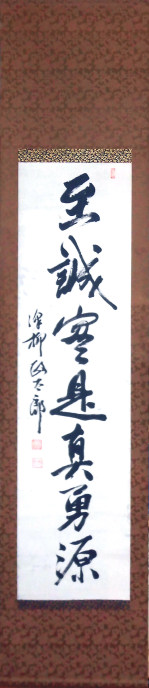 至誠寔是真勇源
澤柳政太郎